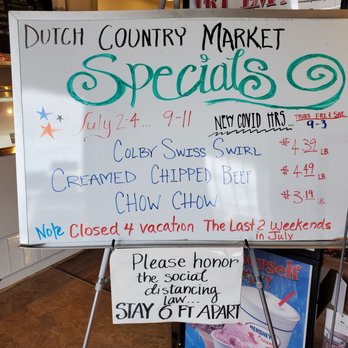 DUTCH COUNTRY MARKET
Specials
July 2-4... 9-11
NEW COVID HRS... THURS FRI & SAT
9-3
COLBY SWISS SWIRL $4.39 LB.
CREAMED CHIPPED BEEF $4.49 LB
CHOW CHOW $3.19 LB.
Note Closed 4 vacation The Last 2 Weekends
in July
Please honor
the social
distancing
law...
STAY 6 FT APART
HERSHEY'S